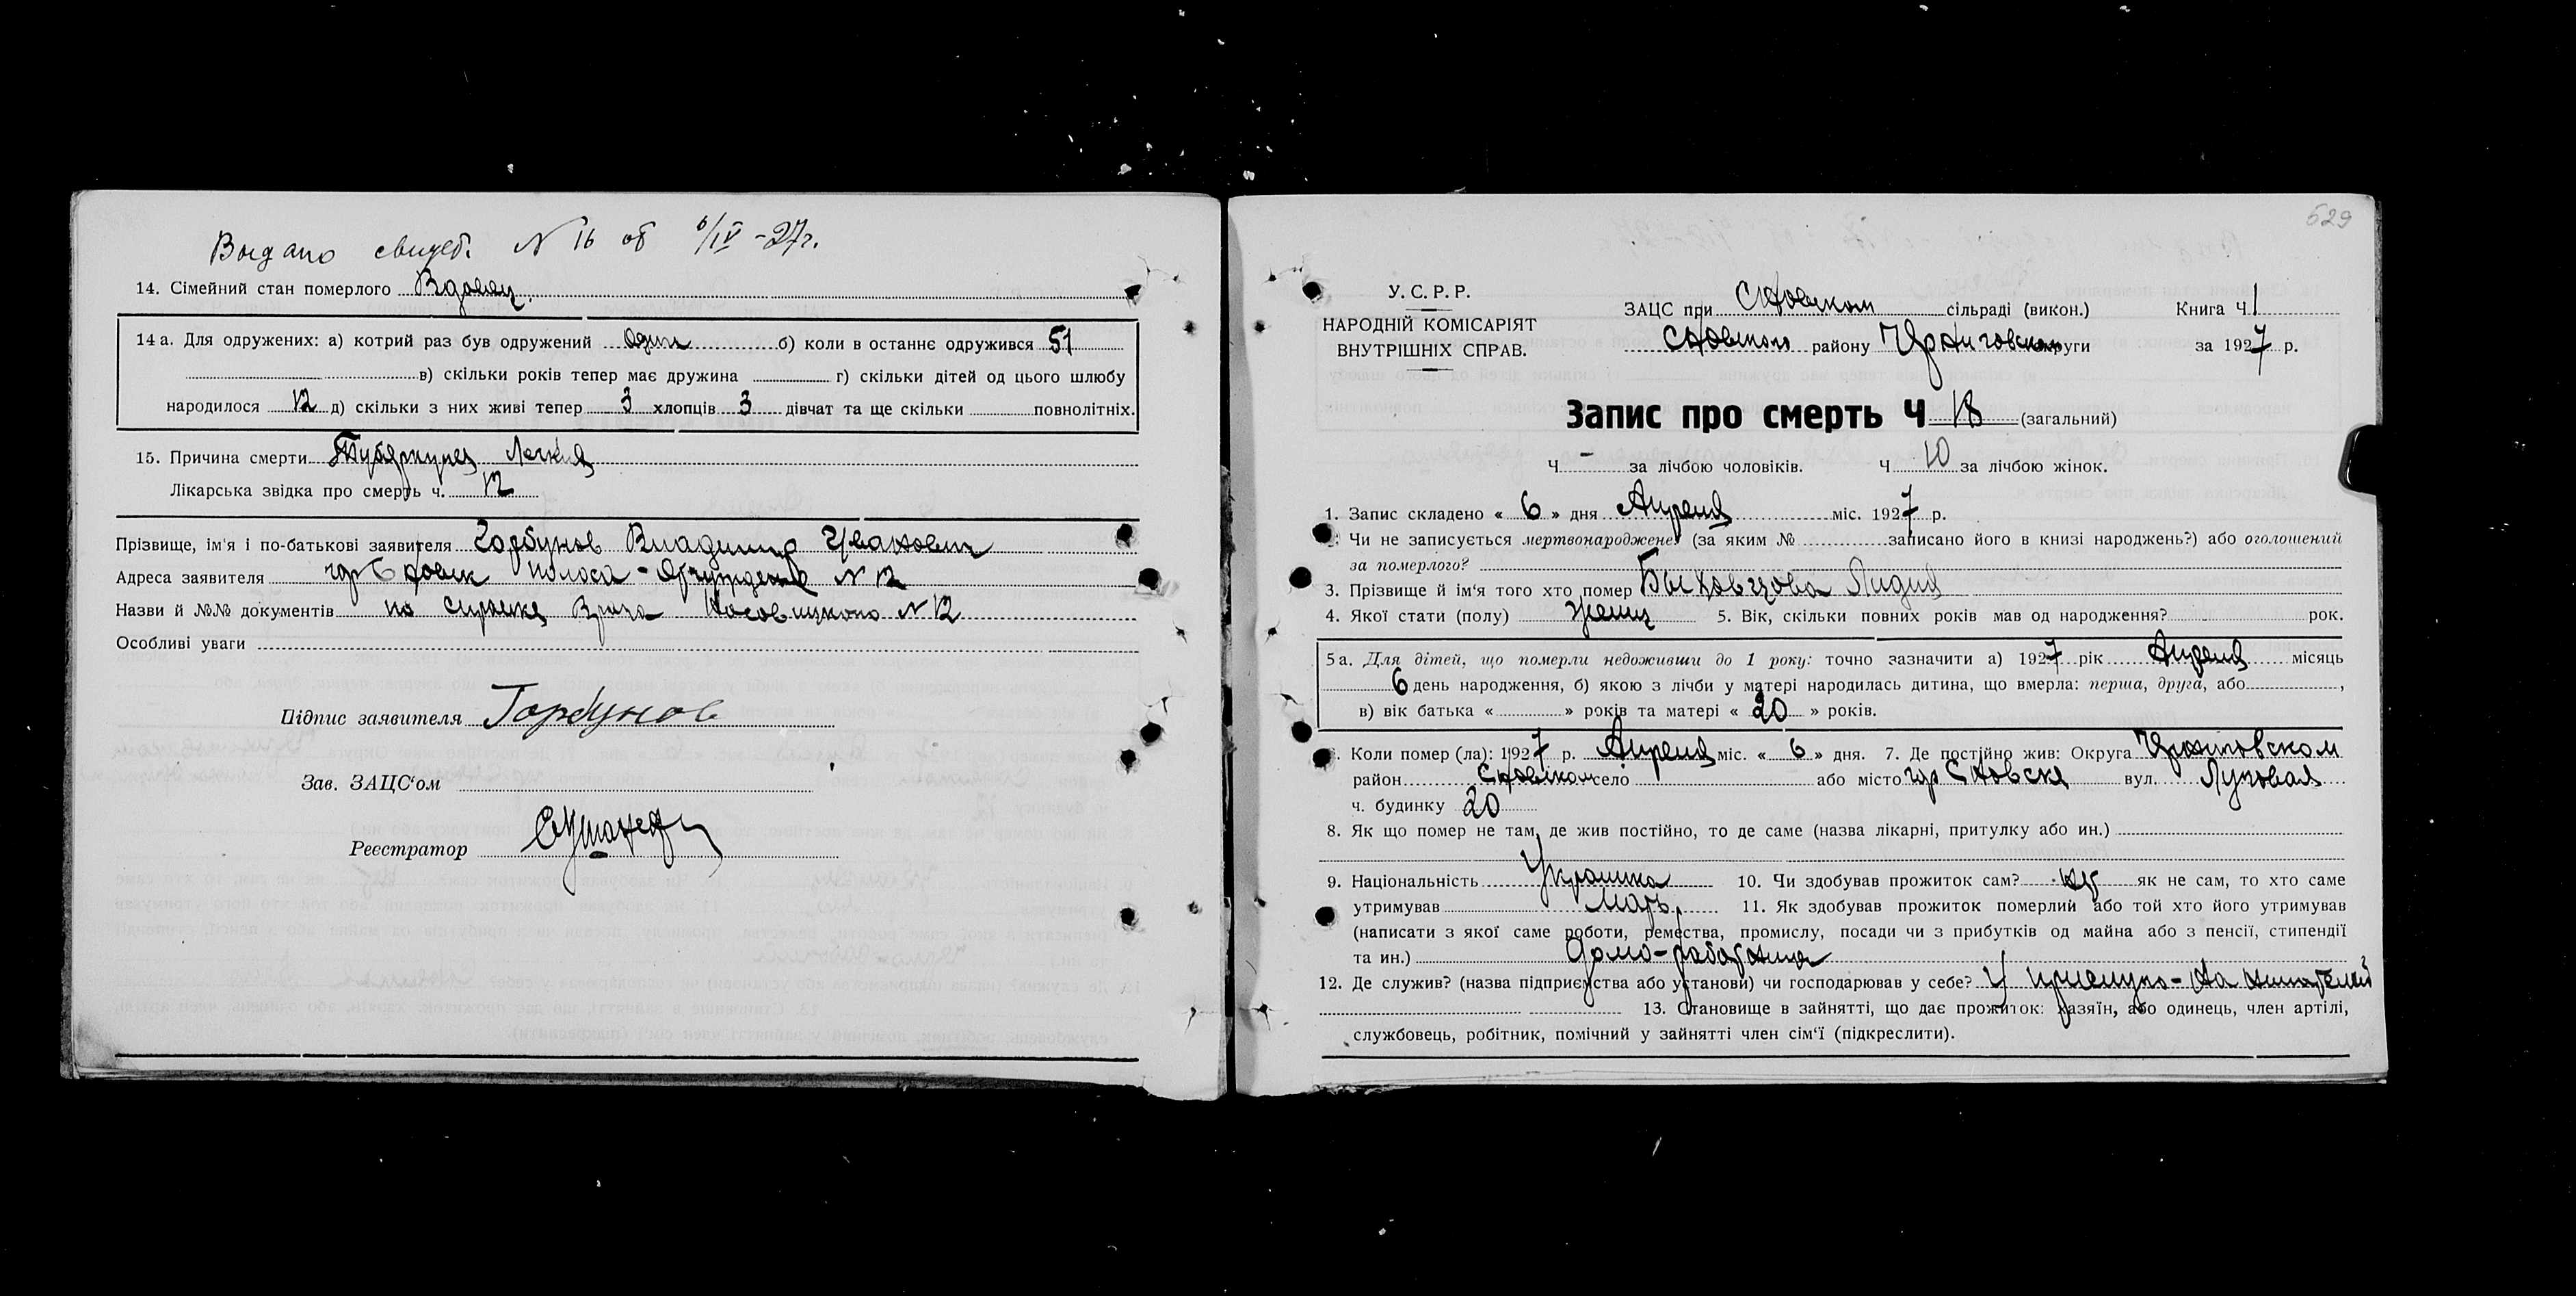 Выдано свидет. N 16 от 6/IV -27г.
14. Сімейний стан померлого Вдовец
14 а. Для одружених: а) котрий раз був одружений один б) коли в останнє одружився 51
в) скільки років тепер має дружина г) скільки дітей од цього шлюбу
народилося 12 д) скільки з них живі тепер 3 хлопців 3 дівчат та ще скільки повнолітніх.
15. Причина смерти Туберкулез Легких
Лікарська звідка про смерть ч. 12
Прізвище, ім'я і по-батькові заявителя Горбунов Владимир Иванович
Адреса заявителя гор Сновск полоса-Отчуждения N 12
Назви й №№ документів по справке Врача N 12
Особливі уваги
Підпис заявителя Горбунов
Зав. ЗАЦС'ом
Реєстратор
529
У. С. Р. Р.
НАРОДНІЙ КОМІСАРІЯТ
ВНУТРІШНІХ СПРАВ.
ЗАЦС при Сновском сільраді (викон.) Книга Ч 1
Сновского району Черниговской округи за 1927 р.
Запис про смерть Ч 18 (загальний)
Ч - за лічбою чоловіків. Ч 10 за лічбою жінок.
1. Запис складено « 6 » дня Апреля міс. 1927 р.
Чи не записується мертвонароджене (за яким № записано його в книзі народжень?) або оголошений
за померлого?
3. Прізвище й ім'я того хто помер Быховцова Лидия
4. Якої стати (полу) женщ 5. Вік, скільки повних років мав од народження? рок.
5 а. Для дітей, що померли недоживши до 1 року: точно зазначити а) 1927 рік Апреля місяць
6 день народження, б) якою з лічби у матері народилась дитина, що вмерла: перша, друга, або ,
в) вік батька « » років та матері « 20 » років.
Коли помер (ла): 1927 р. Апреля міс. « 6 » дня. 7. Де постійно жив: Округа Черниговском
район Сновском село або місто гор Сновске вул. Луговая
ч. будинку 20
8. Як що помер не там, де жив постійно, то де саме (назва лікарні, притулку або ин.)
9. Національність Украинка 10. Чи здобував прожиток сам? нет як не сам, то хто саме
утримував Мать 11. Як здобував прожиток померлий або той хто його утримував
(написати з якої саме роботи, ремества, промислу, посади чи з прибутків од майна або з пенсії, стипендії
та ин.) домо-работница
12. Де служив? (назва підприємства або установи) чи господарював у себе? У
13. Становище в зайнятті, що дає прожиток: хазяїн, або одинець, член артілі,
службовець, робітник, помічний у зайнятті член сім'ї (підкреслити).